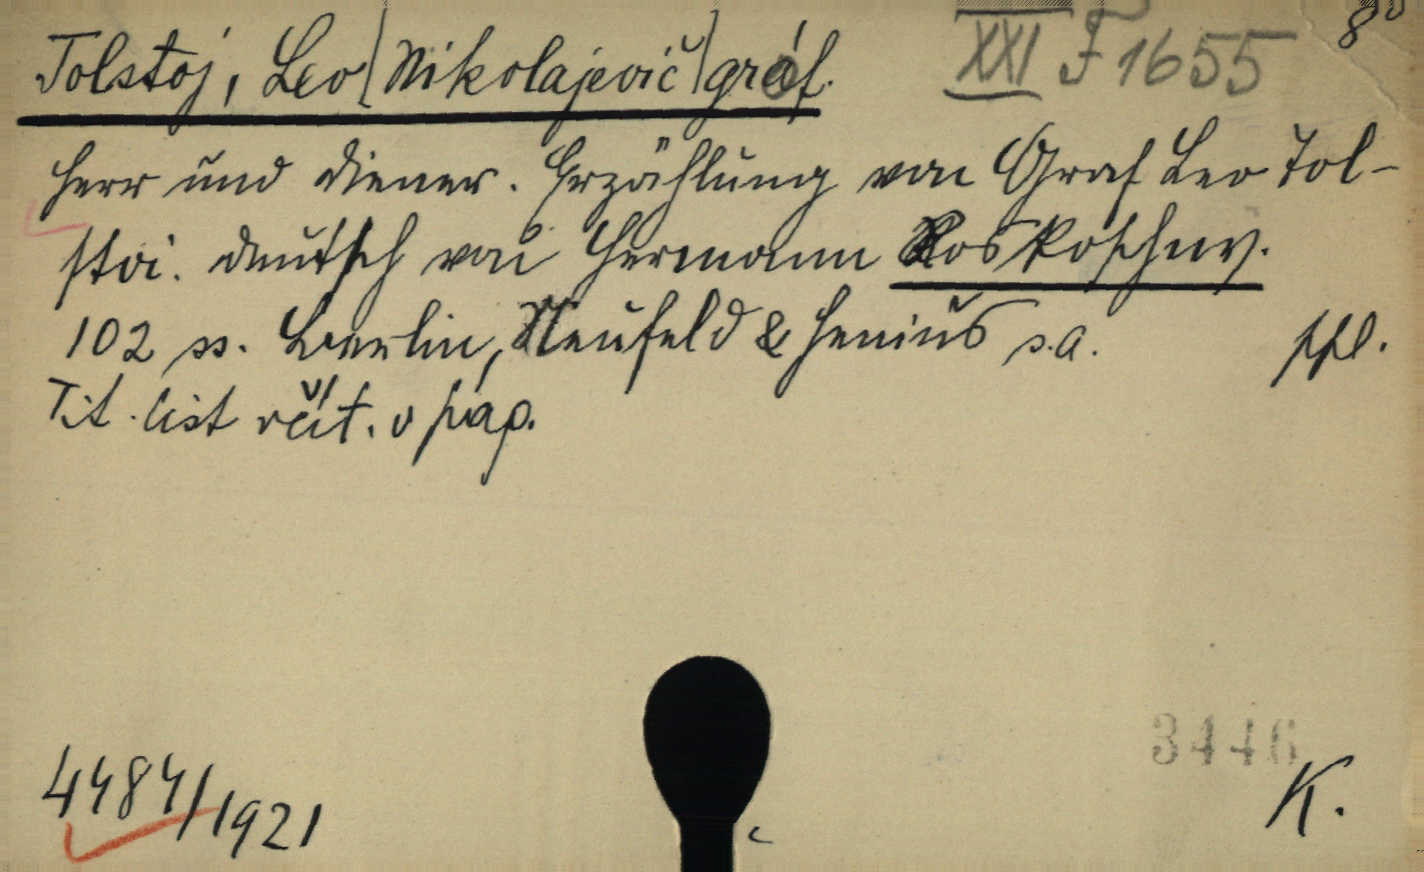 Tolstoj, Leo (Nikolajevič) gráf.
XXI F 1655
8°
Herr und Diener. Erzählung von Graf Leo Tol-
stoi. Deutsch von Hermann Roskoschny.
102 ss. Berlin, Neufeld & Henius s.a. ppl.
Tit. list včít. v páp.
3446
4484/1921
K.